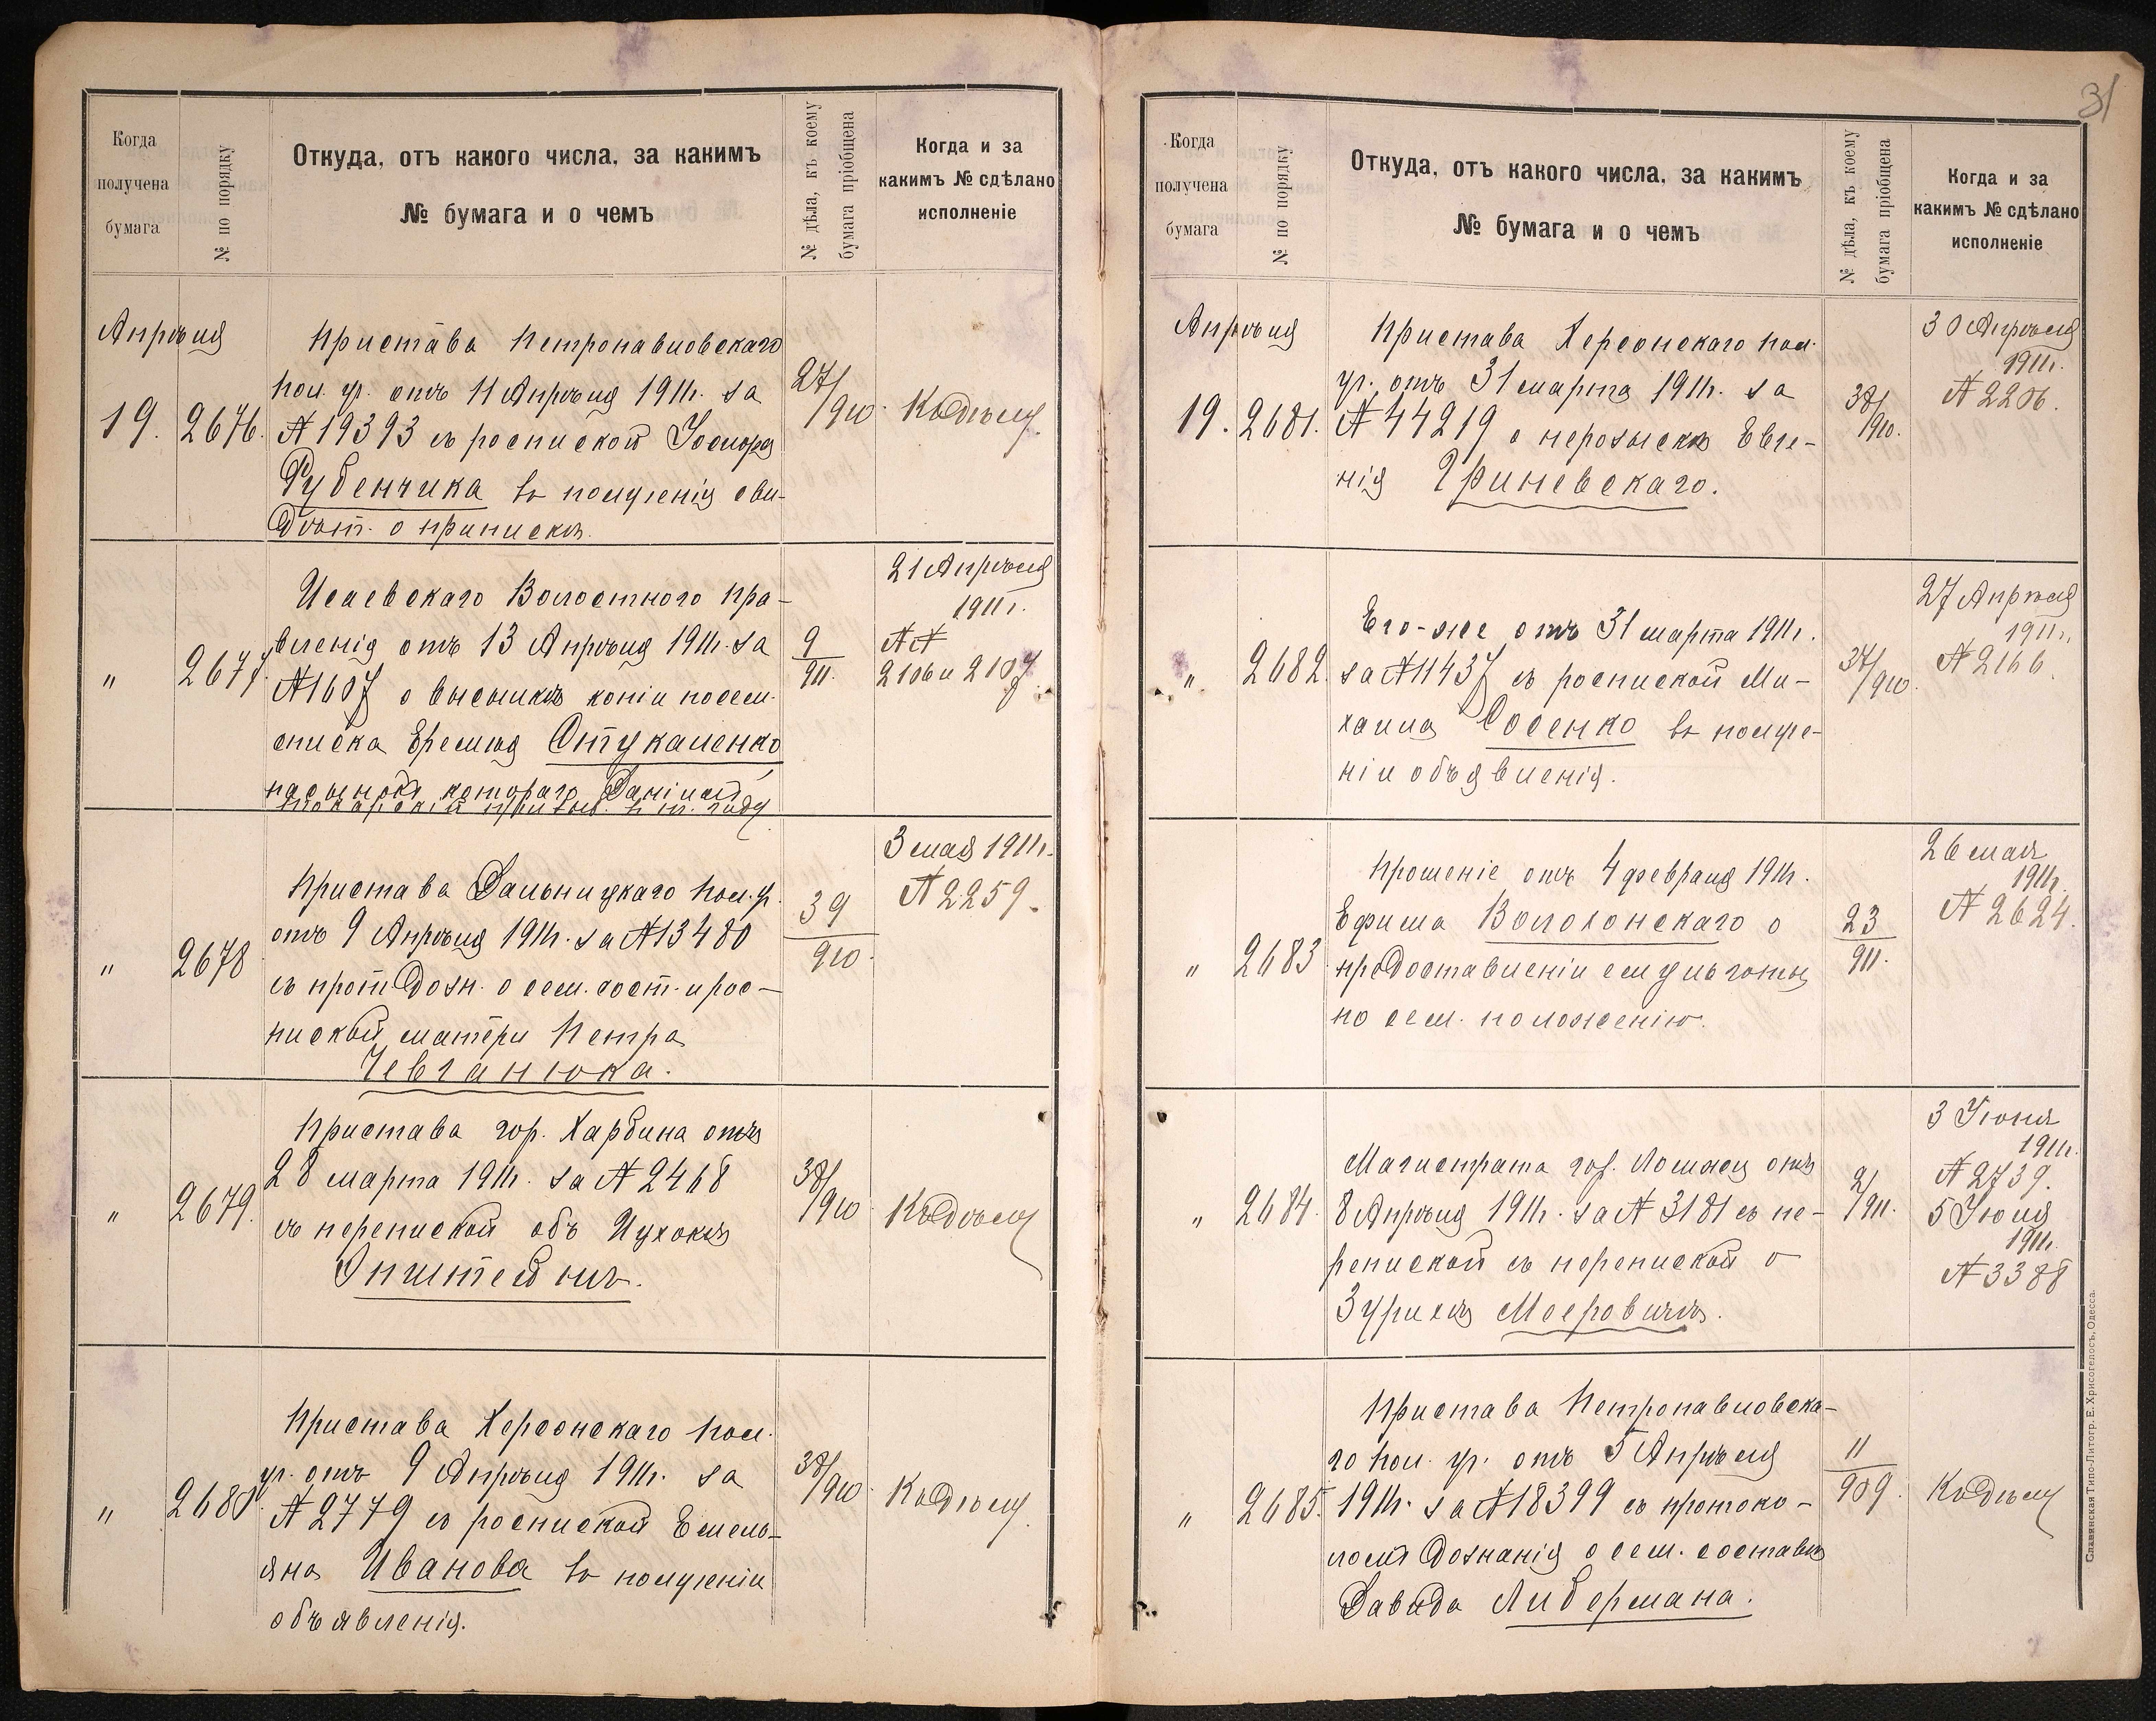 Когда
получена
бумага
№ по порядку
Откуда, отъ какого числа, за какимъ
№ бумага и о чемъ
№ дѣла, къ коему
бумага пріобщена
Когда и за
какимъ № сдѣлано
исполненіе
Апрѣля
19.
2676.
Пристава Петропавловскаго
пол. уч. отъ 11 Апрѣля 1911г. за
№ 19393 съ роспиской Іосифа
Рубенчика въ полученіи сви-
дѣт. о припискѣ.
27/910.
Къ дѣлу.
"
2677.
Исаевскаго Волостного Пра-
вленія отъ 13 Апрѣля 1911г. за
№ 1607 о высылкѣ копіи посем.
списка Еремѣя Стукаленко
пасынокъ котораго Даніилъ
призыв. въ т. году
9/911.
21 Апрѣля
1911г.
№№
2106 и 2107.
"
2678
Пристава Дальницкаго пол. уч.
отъ 9 Апрѣля 1911г. за № 13480
съ прот. дозн. о сем. сост. и рос-
пиской матери Петра
Чевганюка.
39/910.
3 мая 1911г.
№ 2259.
"
2679.
Пристава гор. Харбина отъ
28 марта 1911г. за № 2468
съ перепиской объ Ицхокѣ
Эпштейнъ.
38/910
Къ дѣлу
"
2680.
Пристава Херсонскаго пол.
уч. отъ 9 Апрѣля 1911г. за
№ 2779 съ роспиской Емель-
яна Иванова въ полученіи
объявленія.
38/910
Къ дѣлу.
31
Когда
получена
бумага
№ по порядку
Откуда, отъ какого числа, за какимъ
№ бумага и о чемъ
№ дѣла, къ коему
бумага пріобщена
Когда и за
какимъ № сдѣлано
исполненіе
Апрѣля
19.
2681.
Пристава Херсонскаго пол.
уч. отъ 31 марта 1911г. за
№ 44219 о нерозыскѣ Евге-
нія Гриневскаго.
38/910.
30 Апрѣля
1911г.
№ 2206.
"
2682.
Его-же отъ 31 марта 1911г.
за № 11437 съ роспиской Ми-
хаила Сосенко въ получе-
ніи объявленія.
37/910.
27 Апрѣля
1911г.
№ 2166.
"
2683
Прошеніе отъ 4 февраля 1911г.
Ефима Волохонскаго о
предоставленіи ему льготы
по сем. положенію.
23/911.
26 мая
1911г.
№ 2624.
"
2684.
Магистрата гор. отъ
8 Апрѣля 1911г. за № 3181 съ пе-
репиской съ перепиской о
Зурихѣ Моеровичѣ.
2/911.
3 Іюня
1911г.
№ 2739.
5 Іюля
1911г.
№ 3388
"
2685.
Пристава Петропавловска-
го пол. уч. отъ 5 Апрѣля
1911г. за № 18399 съ протоко-
ломъ дознанія о сем. составѣ
Давида Либермана.
11/909.
Къ дѣлу
Славянская Типо-Литогр. Е. Хрисогелосъ, Одесса.